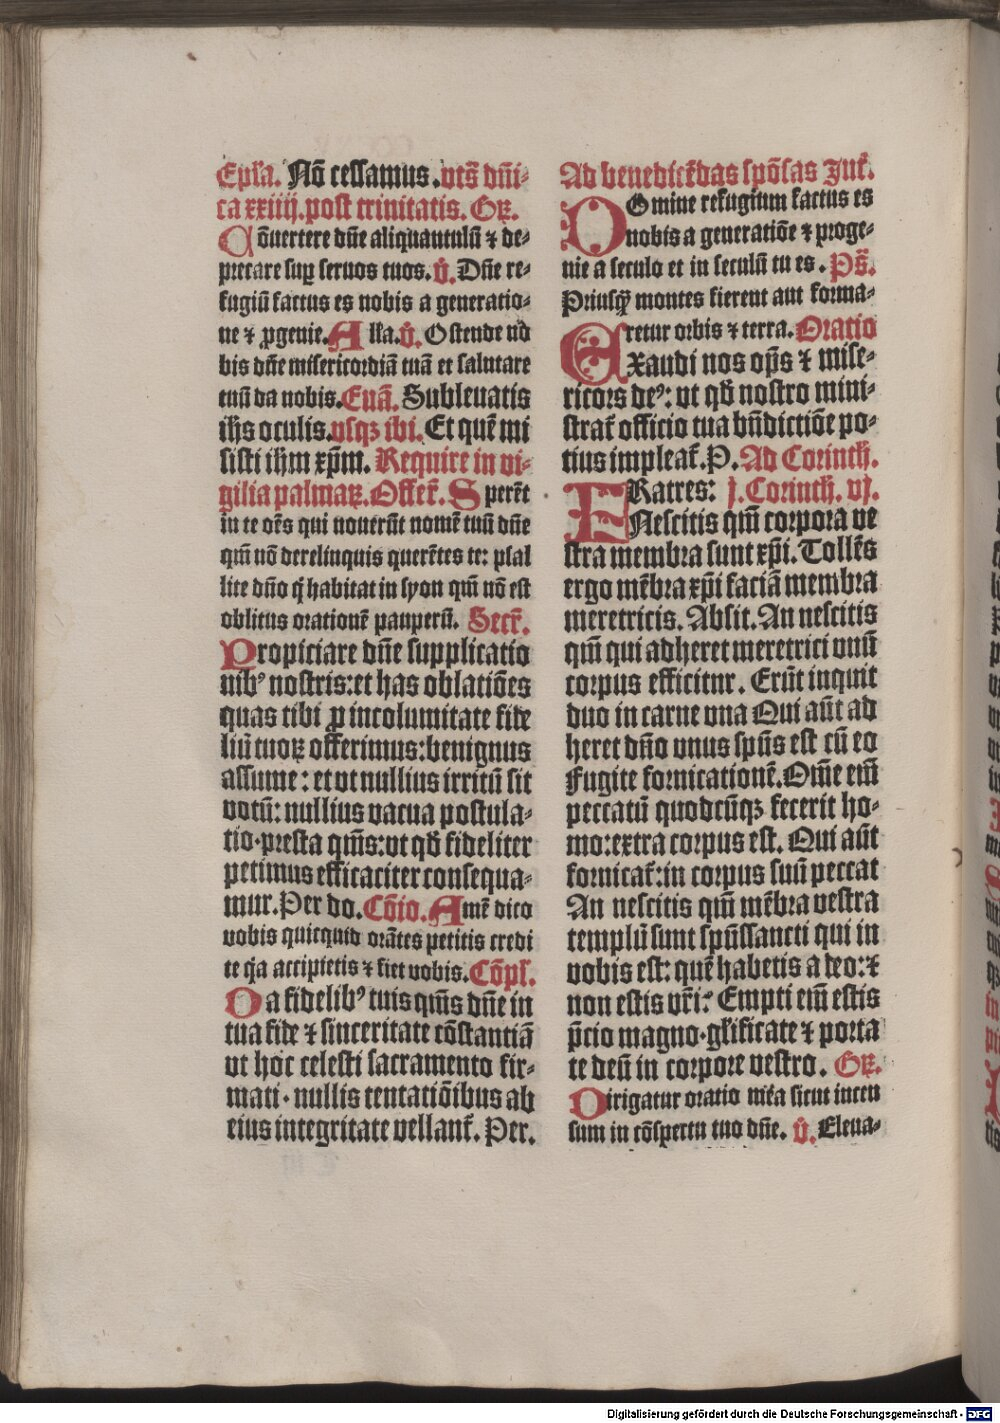 Ep̄la. Nō cessamus. vts̄ dn̄i⸗
ca xxiiij. post trinitatis. Gꝝ.
Cōuertere dn̄e aliquantulū ⁊ de⸗
precare suꝑ seruos tuos. v̄. Dn̄e re⸗
fugiū factus es nobis a generatio⸗
ne ⁊ ꝓgenie. Alla. v̄. Ostende no
bis dn̄e misericordiā tuā et salutare
tuū da nobis. Euā. Subleuatis
ih̄s oculis. vsqꝫ ibi. Et quē mi
sisti ih̄m xp̄m. Require in vi⸗
gilia palmaꝝ. Offer̄. Sperēt
in te oēs qui nouerūt nomē tuū dn̄e
qm̄ nō derelinquis querētes te: psal
lite dn̄o q̇ habitat in syon qm̄ nō est
oblitus orationē pauperū. Secr̄.
Propiciare dn̄e supplicatio
nibꝰ nostris: et has oblatiōes
quas tibi ꝓ incolumitate fide
liū tuoꝝ offerimus: benignus
assume: et vt nullius irritū sit
votū: nullius vacua postula⸗
tio. presta qm̄s: vt qd̄ fideliter
petimus efficaciter consequa⸗
mur. Per do. Cōio. Amē dico
vobis quicquid orātes petitis credi
te qa accipietis ⁊ fiet vobis. Cōpl̄.
Da fidelibꝰ tuis qm̄s dn̄e in
tua fide ⁊ sinceritate cōstantiā
vt hoc celesti sacramento fir⸗
mati. nullis tentatiōibus ab
eius integritate vellant̄. Per.
Ad benedicēdas spōsas Int̄.
DOmine refugium factus es
nobis a generatiōe ⁊ proge⸗
nie a seculo et in seculū tu es. Ps̄.
Priusꝙ̄ montes fierent aut forma⸗
retur orbis ⁊ terra. Oratio
Exaudi nos op̄s ⁊ mise⸗
ricors deꝰ: vt qd̄ nostro mini⸗
strat̄ officio tua bn̄dictiōe po⸗
tius impleat̄. P. Ad Corinth̄.
FRatres: j. Corinth. vj.
Nescitis qm̄ corpora ve
stra membra sunt xp̄i. Tollēs
ergo mēbra xp̄i faciā membra
meretricis. Absit. An nescitis
qm̄ qui adheret meretrici vnū
corpus efficitur. Erūt inquit
duo in carne vna Qui aūt ad
heret dn̄o vnus spūs est cū eo
Fugite fornicationē. Om̄e em̄
peccatū quodcūqꝫ fecerit ho⸗
mo: extra corpus est. Qui aūt
fornicat̄: in corpus suū peccat
An nescitis qm̄ mēbra vestra
templū sunt spūssancti qui in
vobis est: quē habetis a deo: ⁊
non estis vr̄i? Empti em̄ estis
p̄cio magno. gl̄ificate ⁊ porta
te deū in corpore vestro. Gꝝ.
Dirigatur oratio mēa sicut incen
sum in cōspectu tuo dn̄e. v̄. Eleua⸗
Digitalisierung gefördert durch die Deutsche Forschungsgemeinschaft - DFG